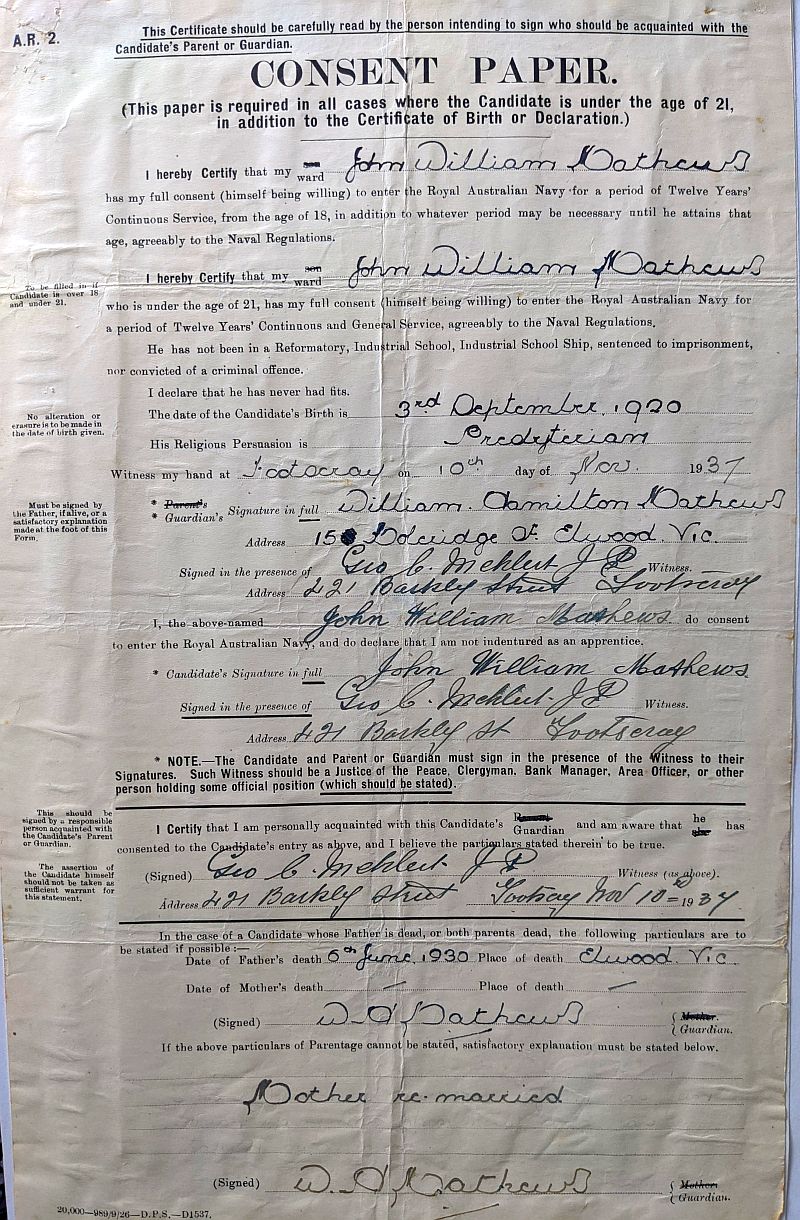 A.R. 2.
This Certificate should be carefully read by the person intending to sign who should be acquainted with the
Candidate's Parent or Guardian.
CONSENT PAPER.
(This paper is required in all cases where the Candidate is under the age of 21,
in addition to the Certificate of Birth or Declaration.)
I hereby Certify that my son ward John William Mathews
has my full consent (himself being willing) to enter the Royal Australian Navy for a period of Twelve Years'
Continuous Service, from the age of 18, in addition to whatever period may be necessary until he attains that
age, agreeably to the Naval Regulations.
To be filled in if
Candidate is over 18
and under 21.
I hereby Certify that my son ward John William Mathews
who is under the age of 21, has my full consent (himself being willing) to enter the Royal Australian Navy for
a period of Twelve Years' Continuous and General Service, agreeably to the Naval Regulations.
He has not been in a Reformatory, Industrial School, Industrial School Ship, sentenced to imprisonment,
nor convicted of a criminal offence.
I declare that he has never had fits.
No alteration or
erasure is to be made in
the date of birth given.
The date of the Candidate's Birth is 3rd September. 1920
His Religious Persuasion is Presbyterian
Witness my hand at Footscray on 10th day of Nov. 1937
Must be signed by
the Father, if alive, or a
satisfactory explanation
made at the foot of this
Form.
* Parent's
* Guardian's Signature in full William Hamilton Mathews
Address 15 St. Elwood. Vic.
Signed in the presence of Geo C. J P Witness.
Address 421 Barkly Street Footscray
I, the above-named John William Mathews do consent
to enter the Royal Australian Navy, and do declare that I am not indentured as an apprentice.
* Candidate's Signature in full John William Mathews
Signed in the presence of Geo C. J P Witness.
Address 421 Barkly St Footscray
* NOTE.—The Candidate and Parent or Guardian must sign in the presence of the Witness to their
Signatures. Such Witness should be a Justice of the Peace, Clergyman, Bank Manager, Area Officer, or other
person holding some official position (which should be stated).
This should be
signed by a responsible
person acquainted with
the Candidate's Parent
or Guardian.
I Certify that I am personally acquainted with this Candidate's Parent Guardian and am aware that he she has
consented to the Candidate's entry as above, and I believe the particulars stated therein to be true.
The assertion of
the Candidate himself
should not be taken as
sufficient warrant for
this statement.
(Signed) Geo C. J P Witness (as above).
Address 421 Barkly Street Footscray Nov 10th 1937
In the case of a Candidate whose Father is dead, or both parents dead, the following particulars are to
be stated if possible :—
Date of Father's death 6th June. 1930 Place of death Elwood. Vic.
Date of Mother's death — Place of death —
(Signed) W. H Mathews { Mother. Guardian.
If the above particulars of Parentage cannot be stated, satisfactory explanation must be stated below.
Mother re-married
(Signed) W. H Mathews { Mother Guardian.
20,000—989/9/26—D.P.S.—D1537.